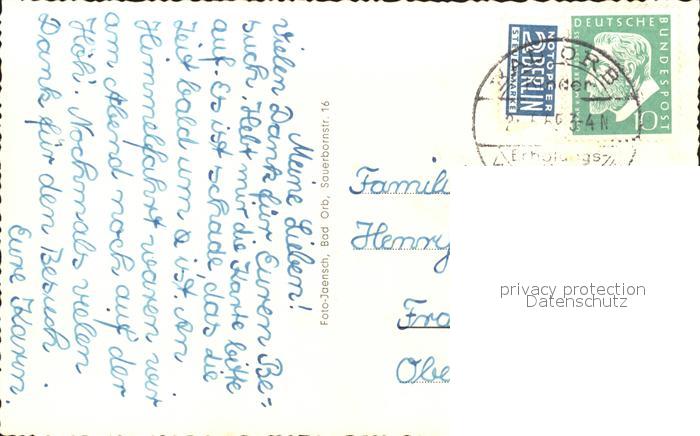 Meine Lieben!
Vielen Dank für Euren Be-
such. Hebt mir die Karte bitte
auf. Es ist schade, das die
Zeit bald um ist. An
Himmelfahrt waren wir
am Abend noch auf der
Höh'. Nochmals vielen
Dank für den Besuch
Eure Karin.
Foto-Jaensch, Bad Orb, Sauerbornstr. 16
NOTOPFER
2 BERLIN
STEUERMARKE
DEUTSCHE BUNDESPOST
10
ORB
3-4 N
Erholungs
Famili
Henry
Fra
Obe
privacy protection
Datenschutz